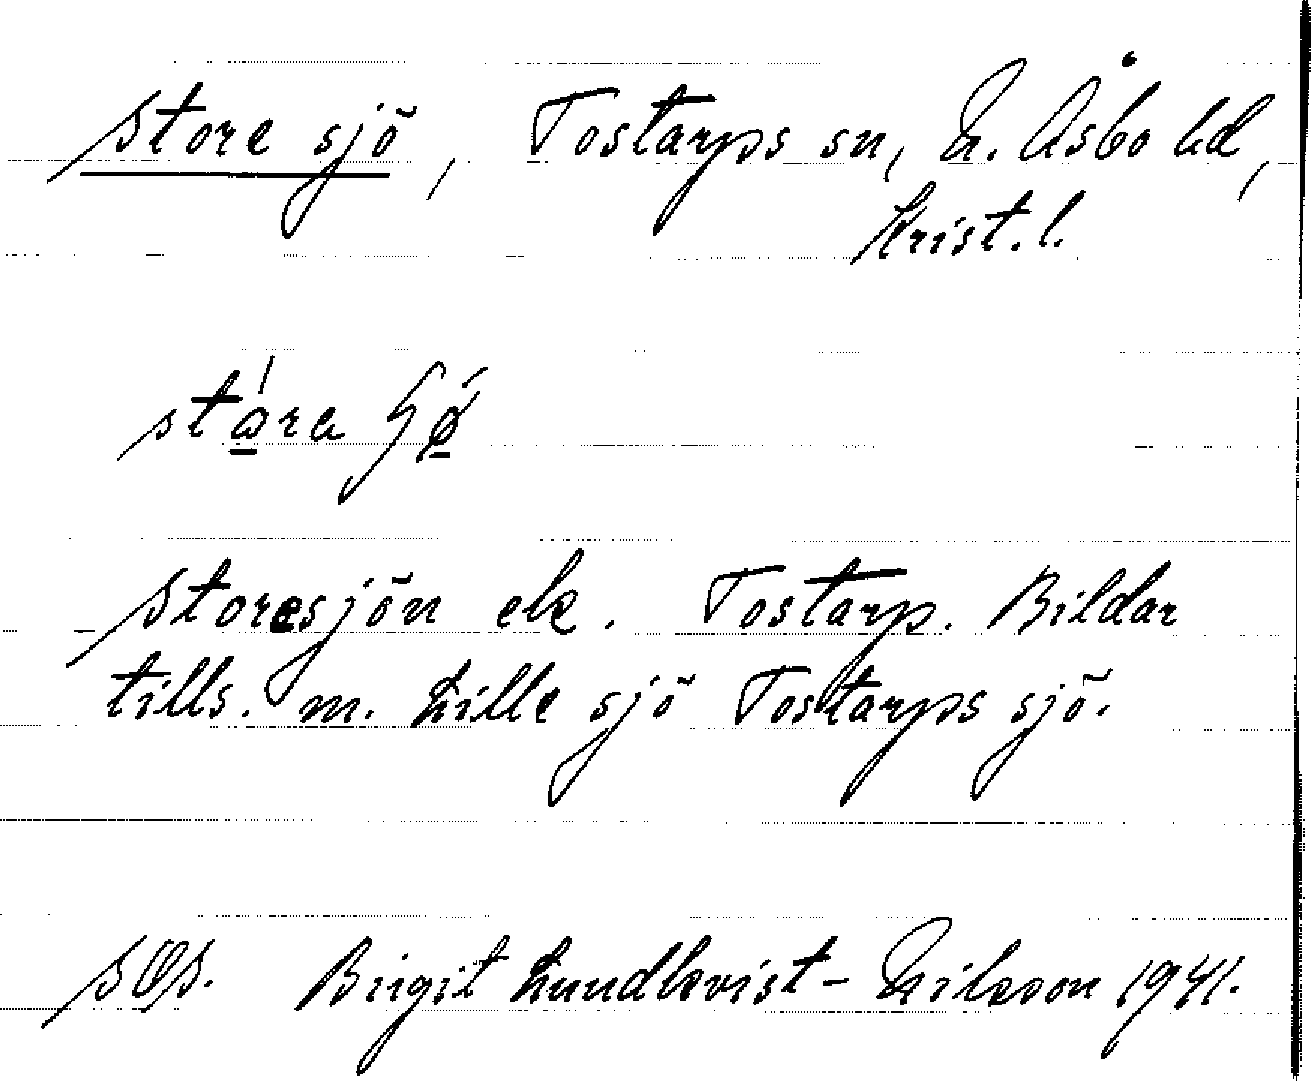 Store sjö, Tostarps sn, N. Åsbo hd,
Krist. l.
stára
Storesjön ek. Tostarp. Bildar
tills. m. Lille sjö Tostarps sjö.
Birgit Lundkvist-Nilsson 1941.